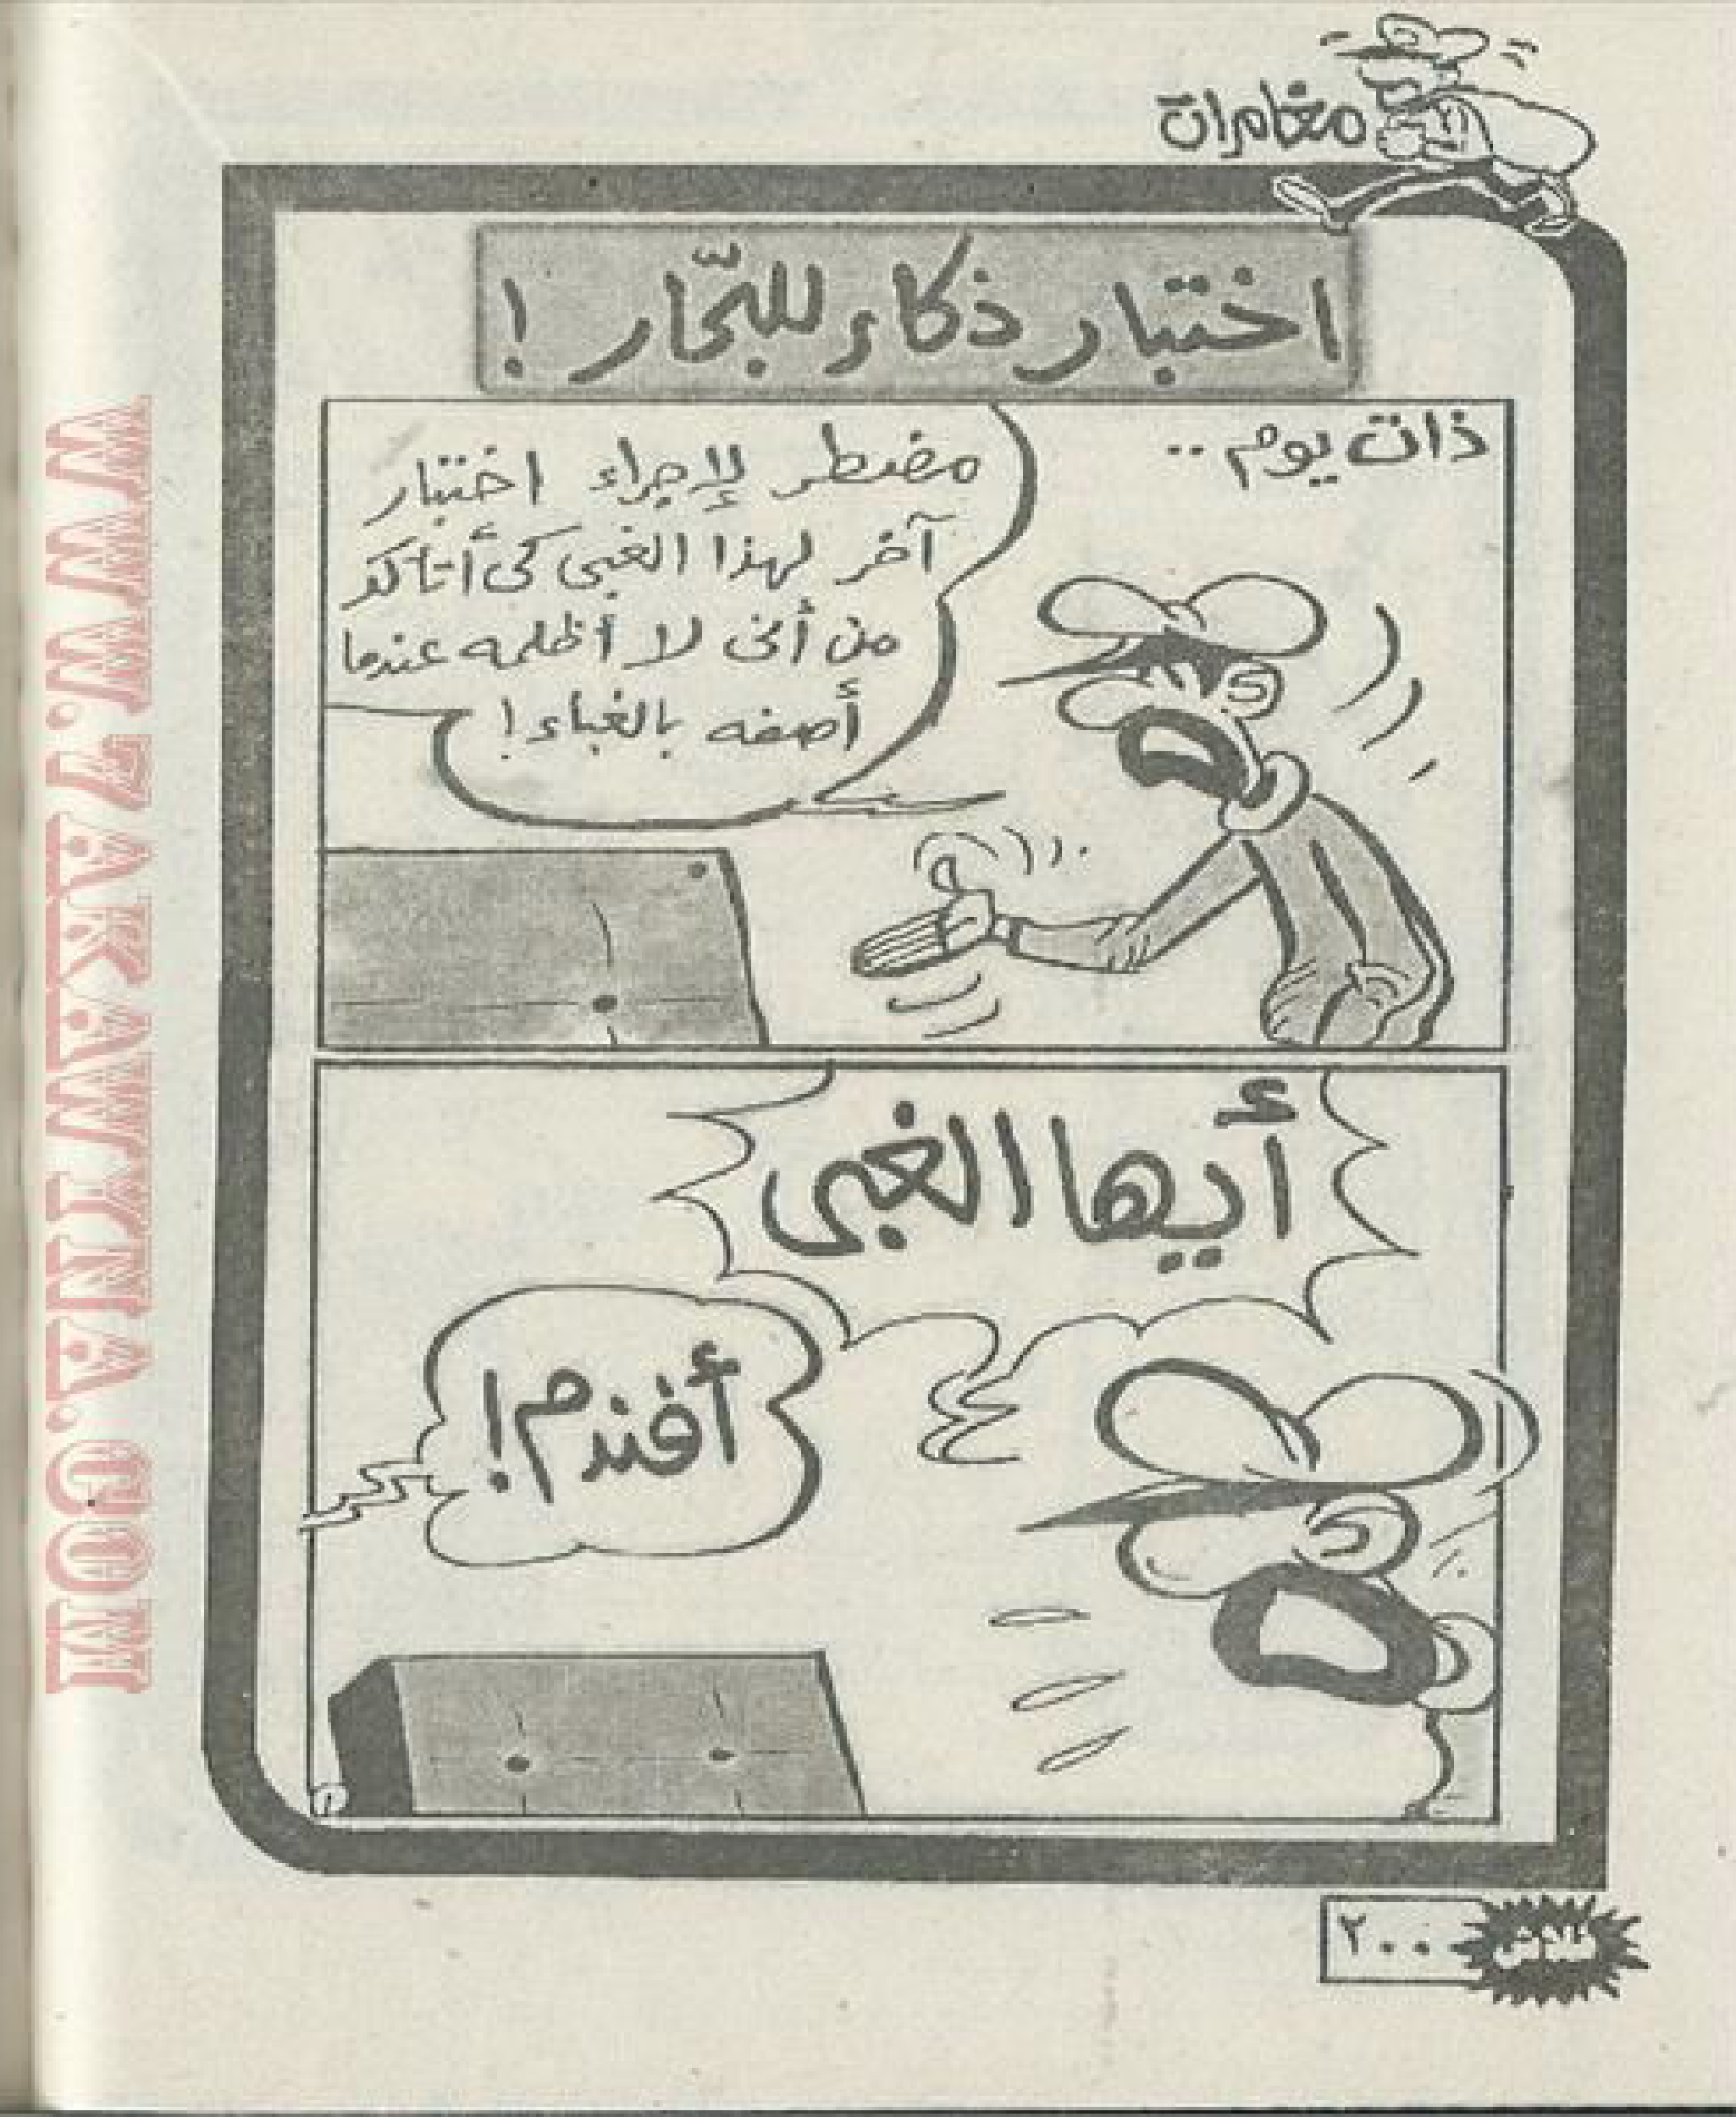 مغامرات
اختبار ذكاء للبحّار !
ذات يوم ..
مضطر لإجراء اختبار
آخر لهذا الغبى كى أتأكد
من أنى لا أظلمه عندما
أصفه بالغباء !
أيها الغبى
أفندم !
فلاش
٢٠٠
WWW.7AKAWITNA.COM